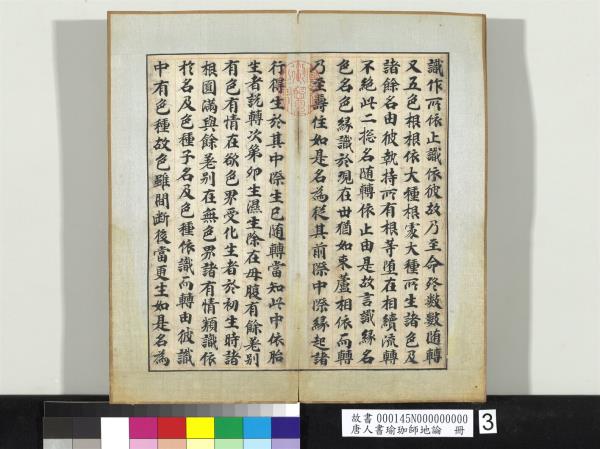 識作所依止識依彼故乃至命終數數隨轉
又五色根根依大種根處大種所生諸色及
諸餘名由彼執持所有根等墮在相續流轉
不絕此二揔名隨轉依止由是故言識緣名
色名色緣識於現在世猶如束蘆相依而轉
乃至壽住如是名為從其前際中際緣起諸
行得生於其中際生已隨轉當知此中依胎
生者說轉次第卵生濕生除在母腹有餘差別
有色有情在欲色界受化生者於初生時諸
根圓滿與餘差別在無色界諸有情類識依
於名及色種子名及色種依識而轉由彼識
中有色種故色雖間斷後當更生如是名為
故書 000145N000000000
唐人書瑜珈師地論 冊
3